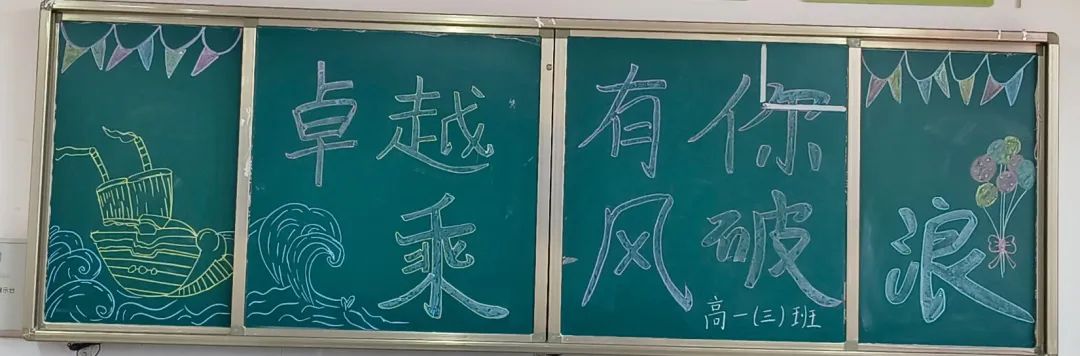 卓越有你
乘风破浪
高一(三)班
展示台